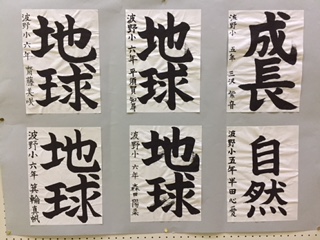 成長
波野小 五年 三沢 紫音
地球
波野小 六年
地球
波野小 六年 齋藤
自然
波野小五年 早田 心愛
地球
波野小 六年 森田 陽菜
地球
波野小 六年 箕輪 真帆